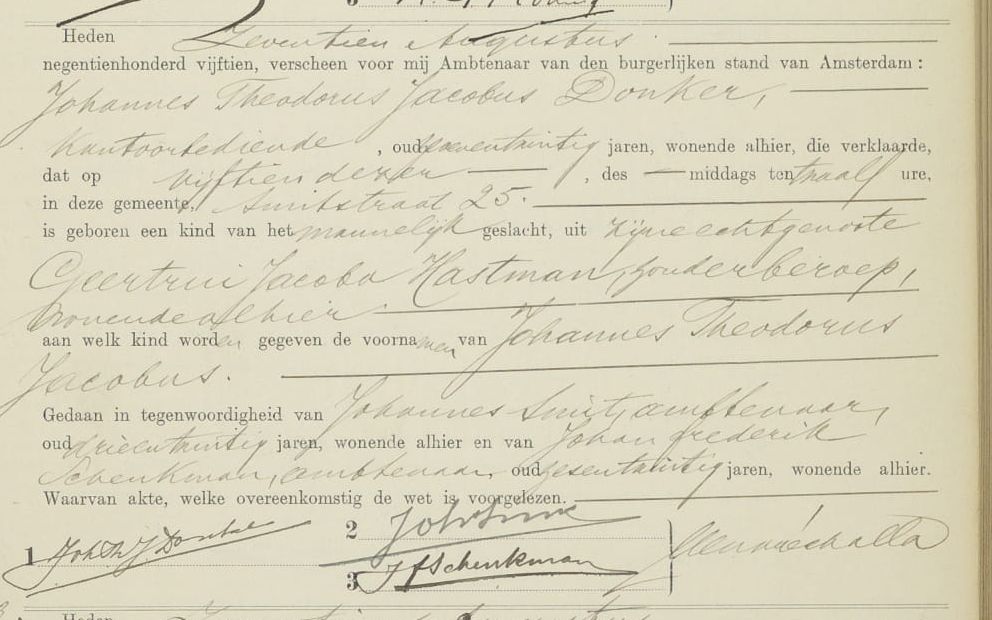 Heden Zeventien Augustus
negentienhonderd vijftien, verscheen voor mij Ambtenaar van den burgerlijken stand van Amsterdam :
Johannes Theodorus Jacobus Donker,
Kantoorbediende , oud zevenentwintig jaren, wonende alhier, die verklaarde,
dat op vijftien dezer , des middags ten twaalf ure,
in deze gemeente, Smitstraat 25.
is geboren een kind van het mannelijk geslacht, uit zijne echtgenoote
Geertrui Jacoba Hastman, zonder beroep,
wonende alhier
aan welk kind worden gegeven de voornamen van Johannes Theodorus
Jacobus.
Gedaan in tegenwoordigheid van Johannes Smit, ambtenaar,
oud drieentwintig jaren, wonende alhier en van Johan Frederik
Schenkman, ambtenaar, oud zesentwintig jaren, wonende alhier.
Waarvan akte, welke overeenkomstig de wet is voorgelezen.
1 Joh Th J Donker 2 Joh Smit
3 JF Schenkman
Heden